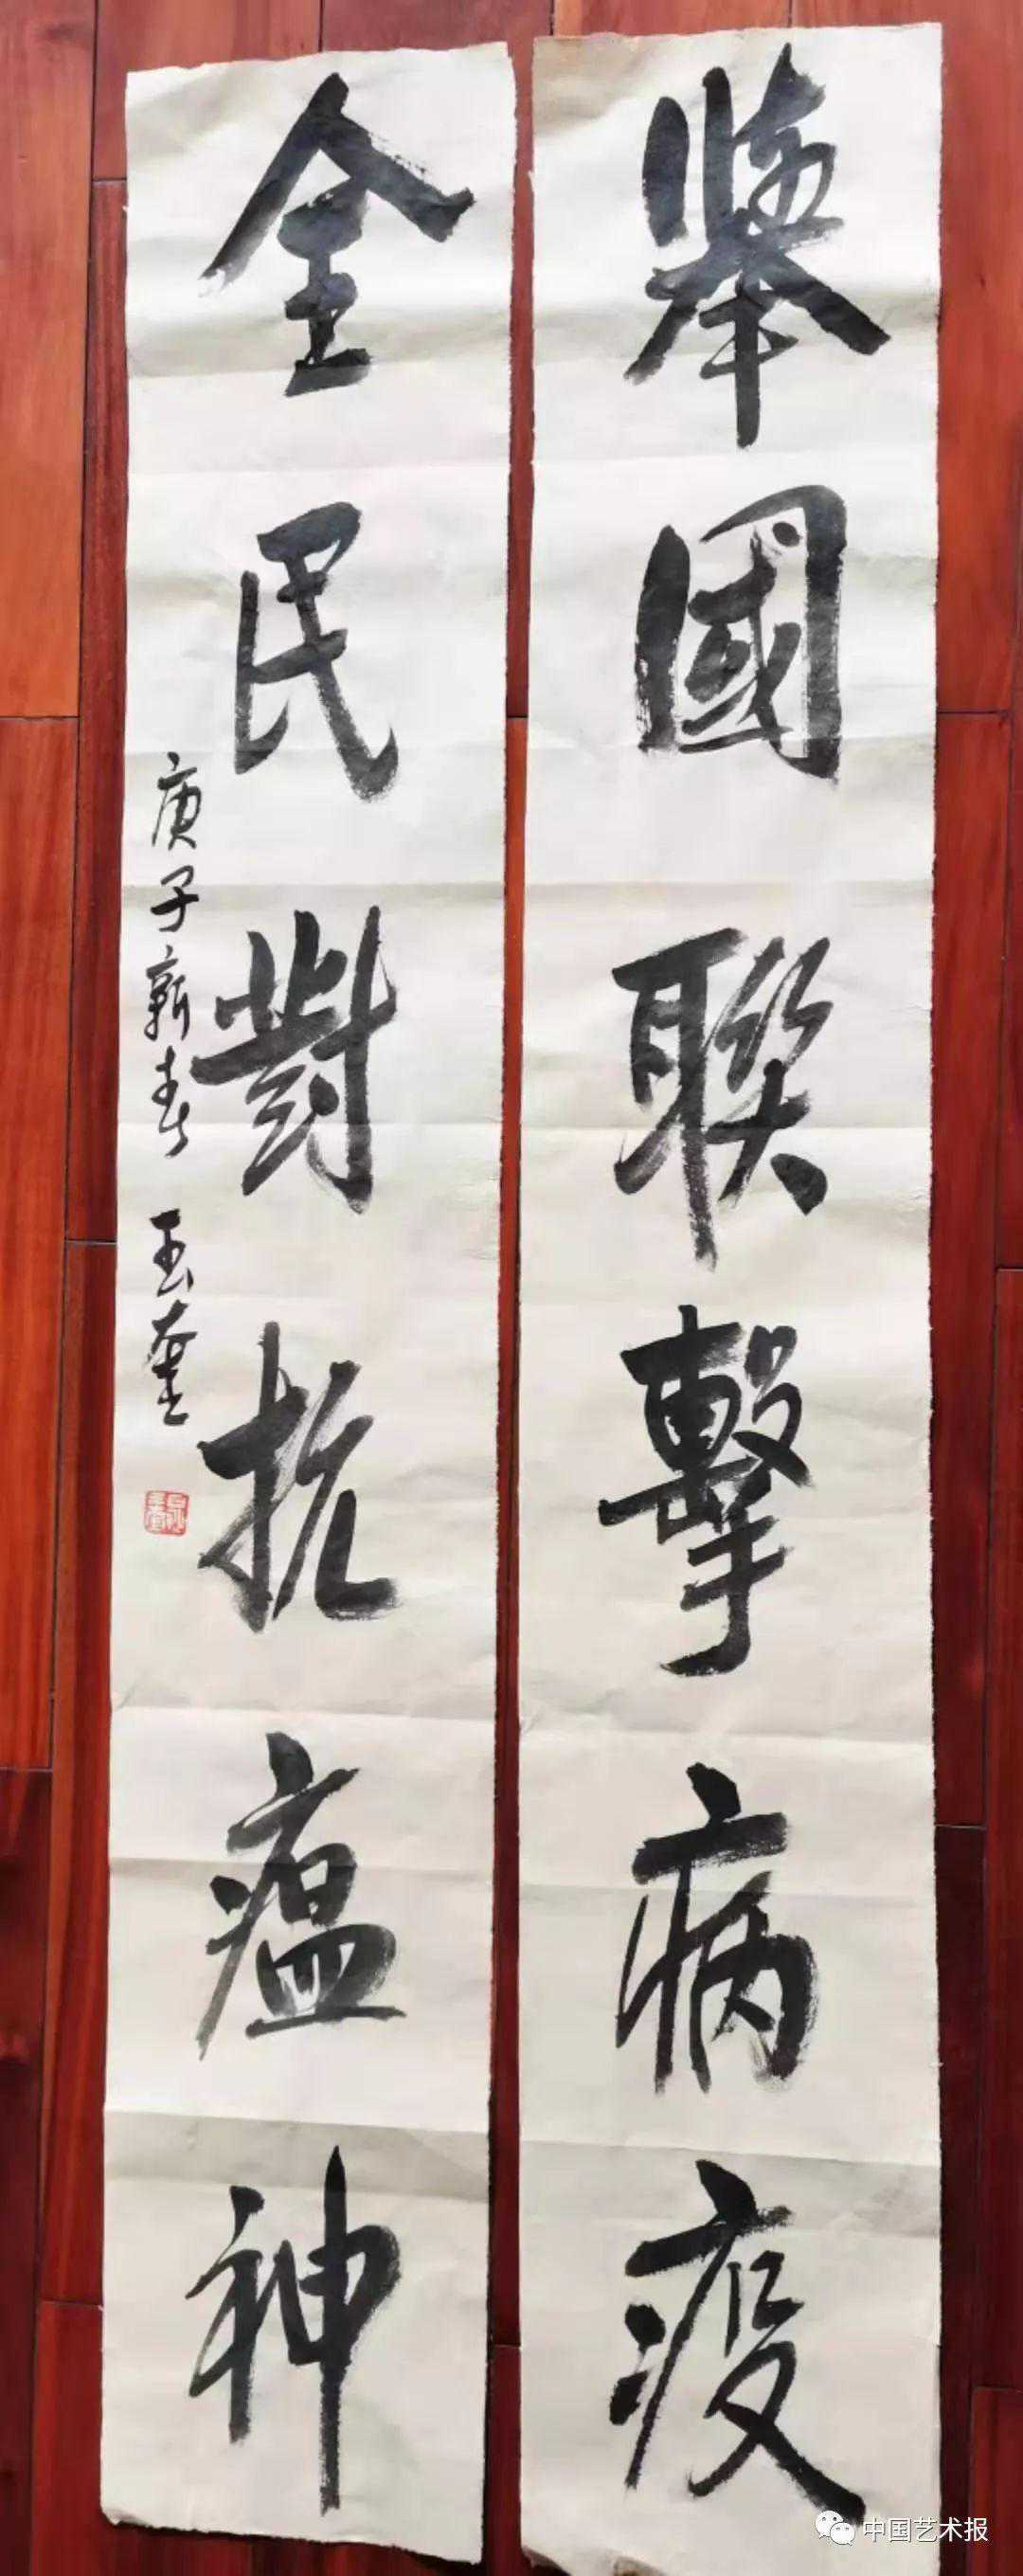 舉國聯擊病疫
全民對抗瘟神
庚子新春 玉奎
中国艺术报